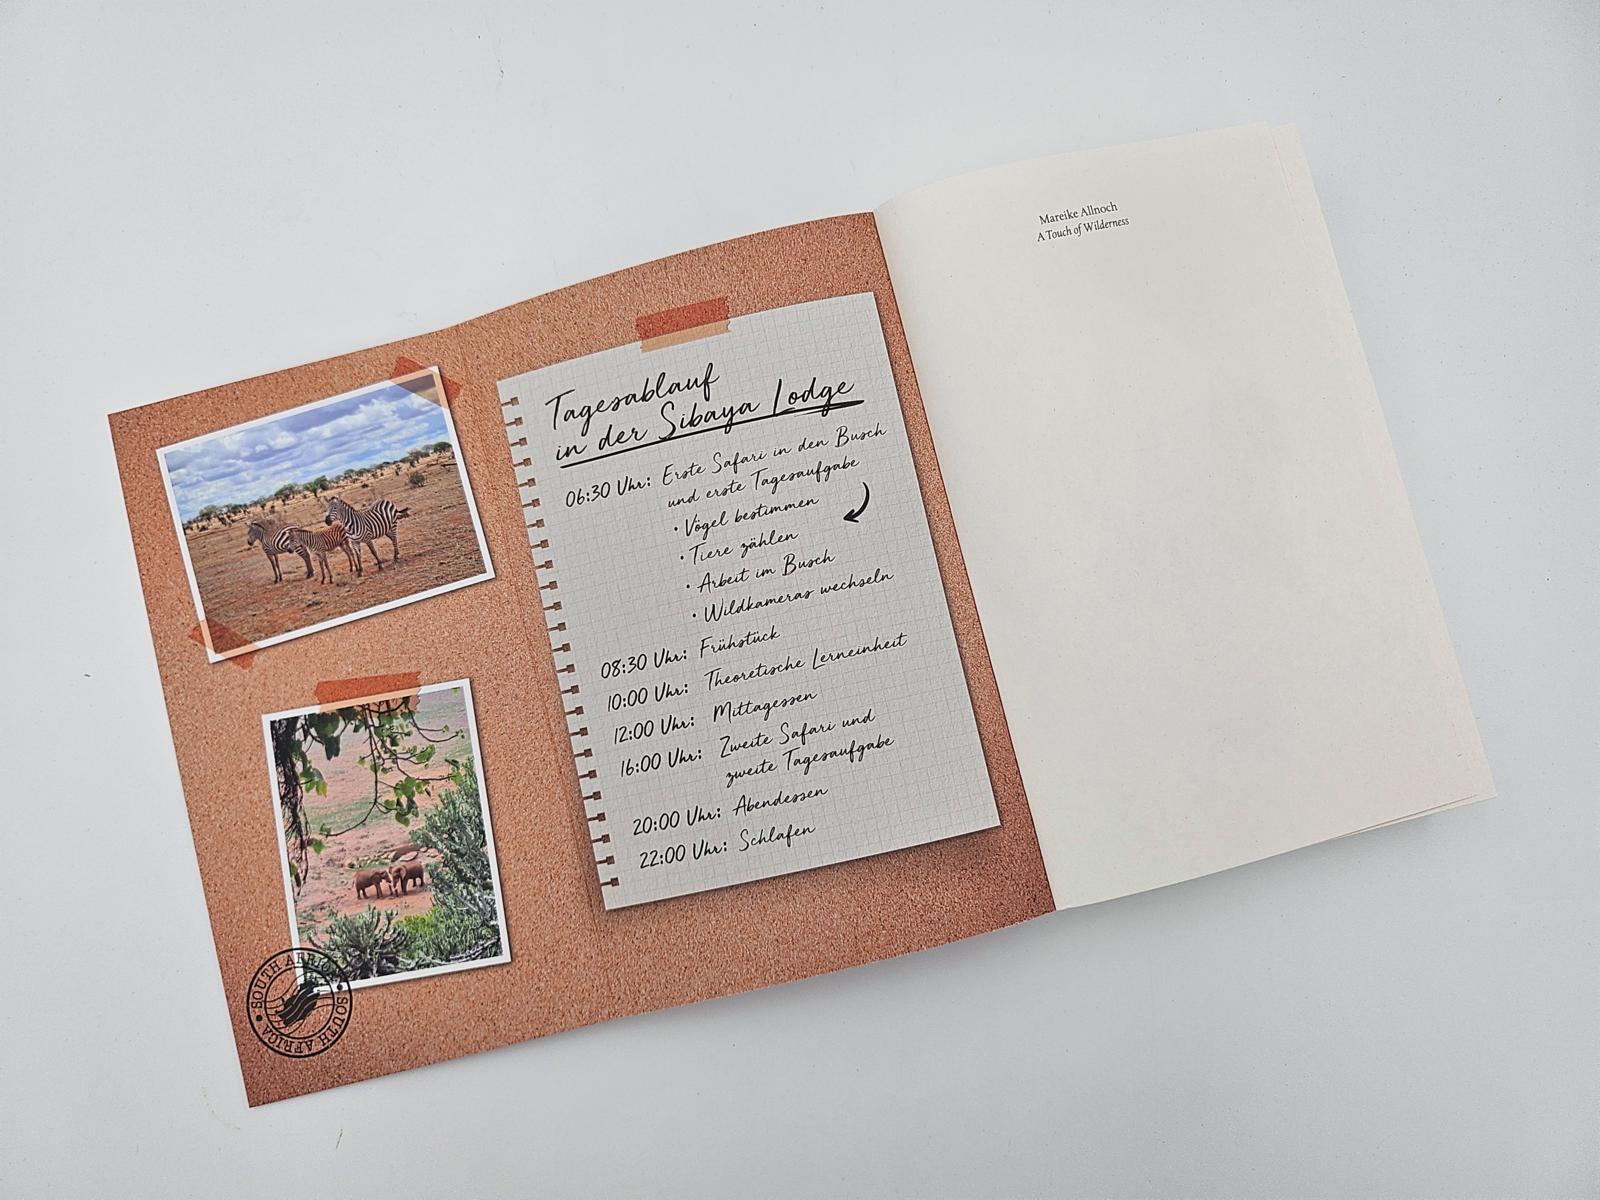 Tagesablauf
in der Sibaya Lodge
06:30 Uhr: Erste Safari in den Busch
und erste Tagesaufgabe
• Vögel bestimmen
• Tiere zählen
• Arbeit im Busch
• Wildkameras wechseln
08:30 Uhr: Frühstück
10:00 Uhr: Theoretische Lerneinheit
12:00 Uhr: Mittagessen
16:00 Uhr: Zweite Safari und
zweite Tagesaufgabe
20:00 Uhr: Abendessen
22:00 Uhr: Schlafen
SOUTH AFRICA • SOUTH AFRICA •
Mareike Allnoch
A Touch of Wilderness